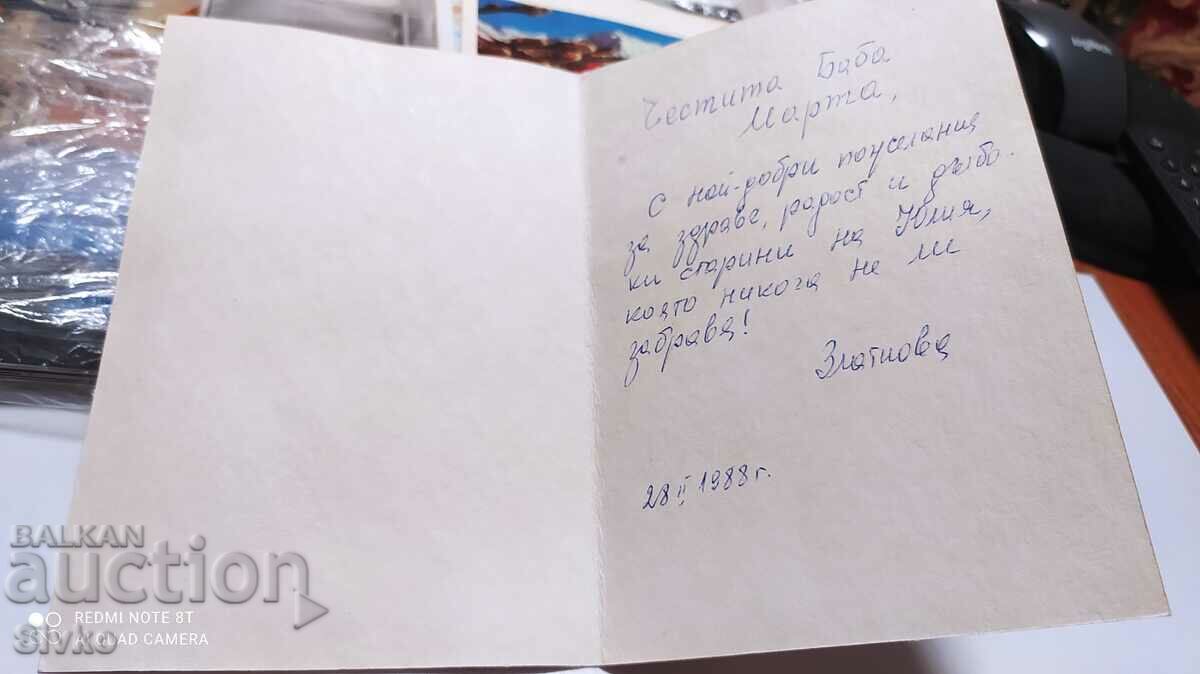 Честита Баба
Марта,
С най-добри пожелания
за здраве, радост и дълбо-
ки старини на Юлия,
която никога не ми
забравя!
Златковa
28 II 1988 г.
BALKAN
auction
REDMI NOTE 8T
AI QUAD CAMERA
Sivko